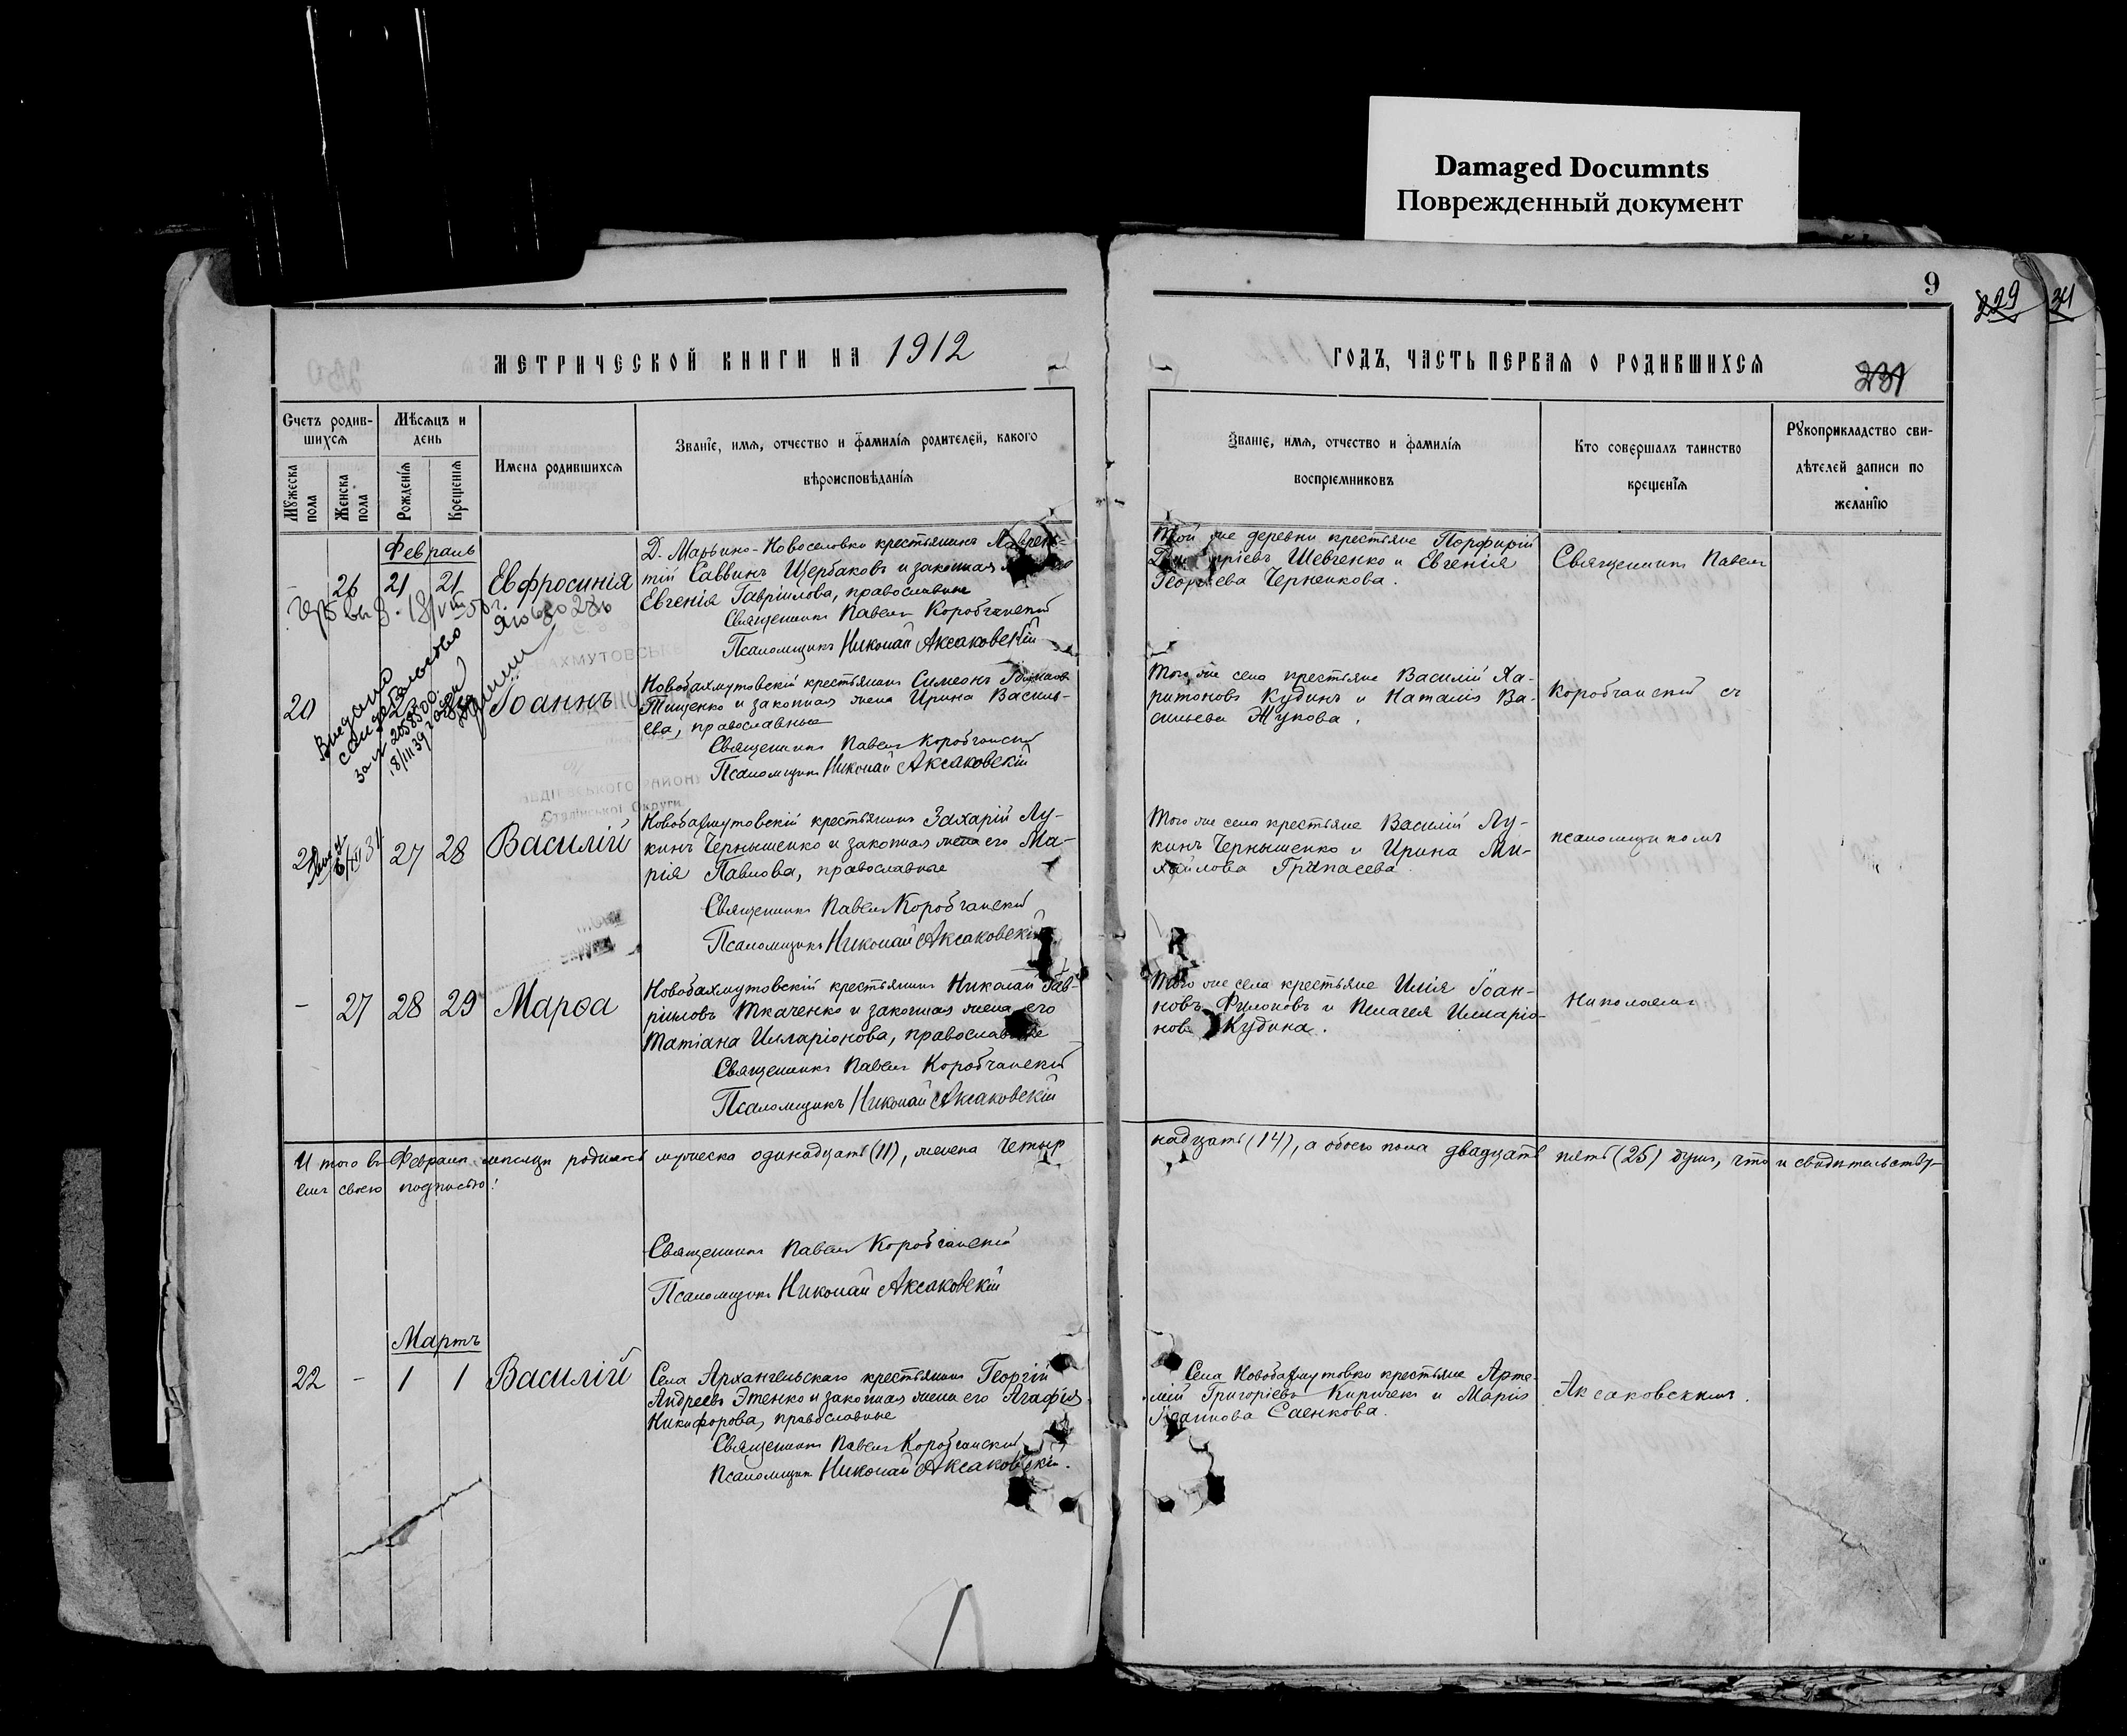 Damaged Documnts
Поврежденный документ
9
229
34
231
МЕТРИЧЕСКОЙ КНИГИ НА 1912
ГОДЪ, ЧАСТЬ ПЕРВАЯ О РОДИВШИХСЯ
Счетъ родив-
шихся
Мѣсяцъ и
день
Мужеска
пола
Женска
пола
Рожденія
Крещенія
Имена родившихся
Званіе, имя, отчество и фамилія родителей, какого
вѣроисповѣданія
Званіе, имя, отчество и фамилія
воспріемниковъ
Кто совершалъ таинство
крещенія
Рукоприкладство сви-
дѣтелей записи по
желанію
Февраль
- 26 21 21 Евфросинія
Д. Марьино-Новоселовки крестьянинъ Лаврен-
тій Саввинъ Щербаковъ и законная
Евгенія Гавріилова, православные
Священникъ Павелъ Коробчанскій
Псаломщикъ Николай Аксаковскій
Той же деревни крестьяне Порфирій
Шевченко и Евгенія
Георгіева Черненкова.
Священникъ Павелъ
18/VIII 50 г.
Выдано
свидетельство
за № 2058500
20 Іоаннъ
Новобахмутовскій крестьянинъ Симеонъ
Тищенко и законная жена Ирина Василь-
ева, православные
Священникъ Павелъ Коробчанскій
Псаломщикъ Николай Аксаковскій
Того же села крестьяне Василій Ха-
ритоновъ Кудинъ и Наталія Ва-
сильева Жукова.
Коробчанскій съ
21 27 28 Василій
Новобахмутовскій крестьянинъ Захарій Лу-
кинъ Чернышенко и законная жена его Ма-
рія Павлова, православные
Священникъ Павелъ Коробчанскій
Псаломщикъ Николай Аксаковскій
Того же села крестьяне Василій Лу-
кинъ Чернышенко и Ирина Ми-
хайлова Грипасева
псаломщикомъ
- 27 28 29 Марѳа
Новобахмутовскій крестьянинъ Николай Гав-
риловъ Ткаченко и законная жена его
Татіана Илларіонова, православные
Священникъ Павелъ Коробчанскій
Псаломщикъ Николай Аксаковскій
Того же села крестьяне Илія Іоан-
новъ Филоновъ и Пелагея Иларіо-
нова Кудина.
Николаемъ
И того въ Февралѣ мѣсяцѣ родилось мужеска одинадцать (11), женска четыр
надцать (14), а обоего пола двадцать пять (25) душъ, что и свидѣтельству-
емъ своею подписью:
Священникъ Павелъ Коробчанскій
Псаломщикъ Николай Аксаковскій
Мартъ
22 - 1 1 Василій
Села Архангельскаго крестьянинъ Георгій
Андреевъ Этенко и законная жена его Агафія
Никифорова, православные
Священникъ Павелъ Коробчанскій
Псаломщикъ Николай Аксаковскій.
Села Новобахмутовки крестьяне Арте-
мій Григоріевъ Киричекъ и Марія
Іоаннова Саенкова.
Аксаковскимъ.